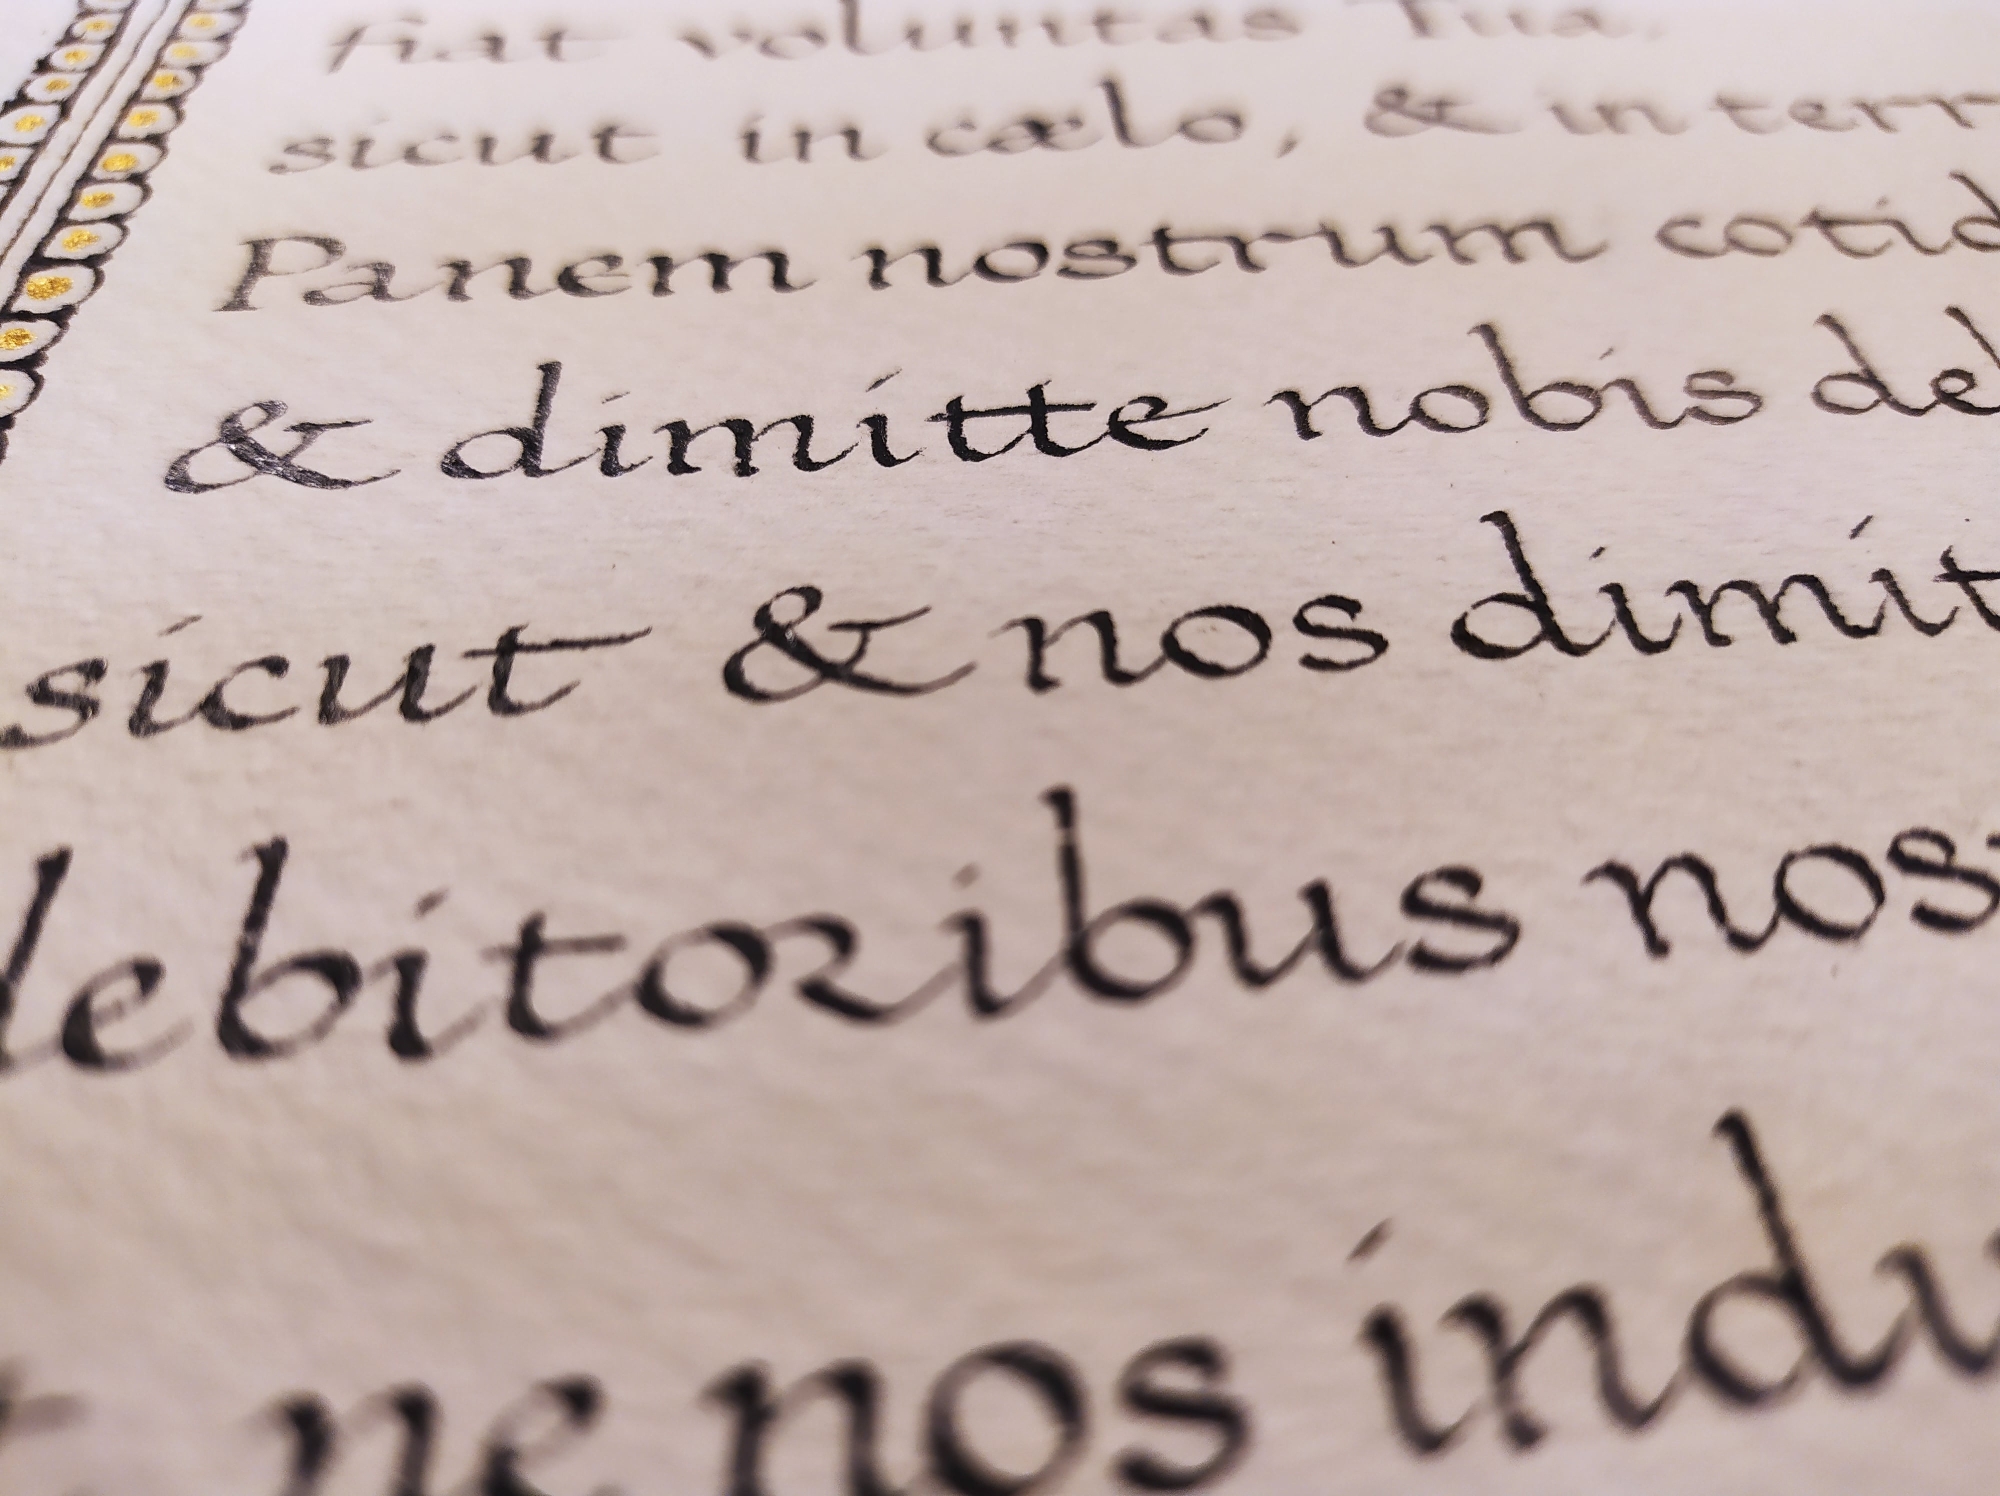 fiat voluntas Tua,
sicut in cælo, & in terr
Panem nostrum cotid
& dimitte nobis deb
sicut & nos dimit
debitoribus nos
ne nos indu